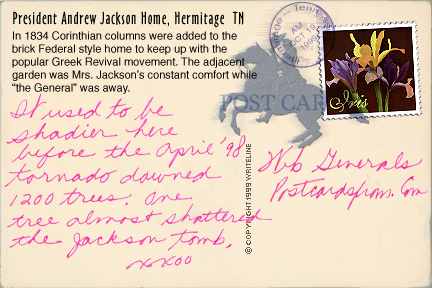 President Andrew Jackson Home, Hermitage TN
In 1834 Corinthian columns were added to the
brick Federal style home to keep up with the
popular Greek Revival movement. The adjacent
garden was Mrs. Jackson's constant comfort while
"the General" was away.
POST CARD
Iris
It used to be
shadier here
before the April '98
tornado downed
1200 trees. One
tree almost shattered
the Jackson tomb.
xxoo
© COPYRIGHT 1999 WRITELINE
Web Generals
Postcardsfrom.Com